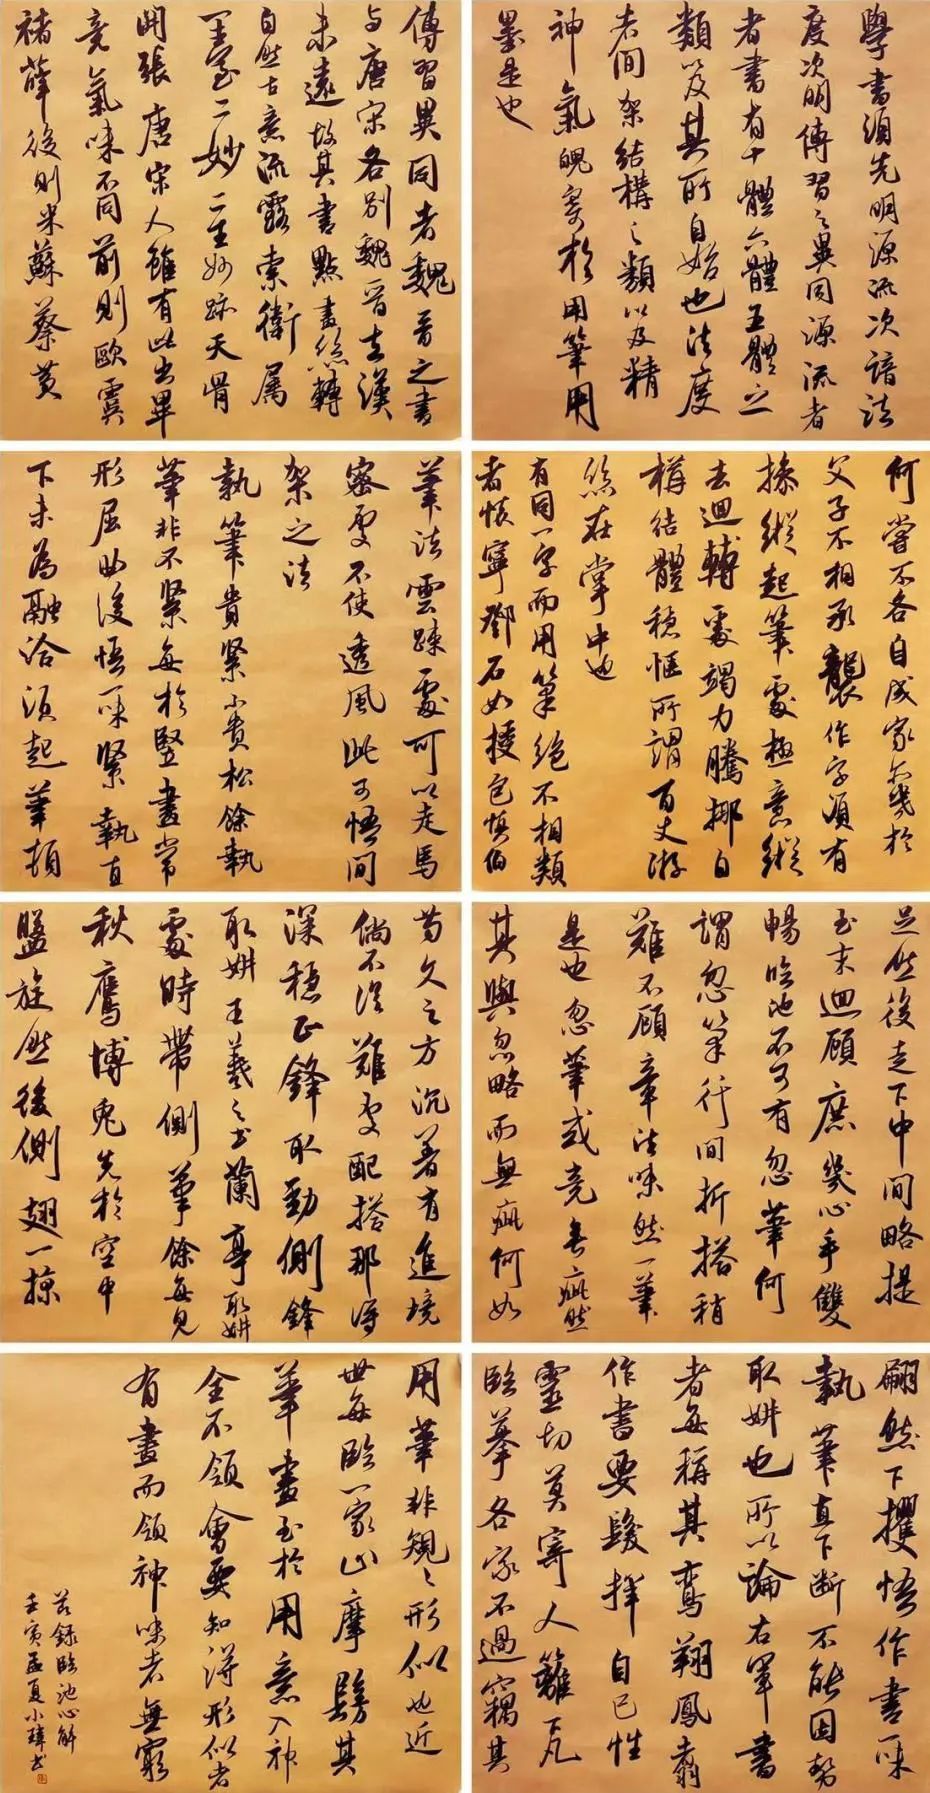 學書須先明源流次諳法
度次明傳習之異同源流者
者書有十體六體五體之
類以及其所自始也法度
者間架結構之類以及精
神氣魄寄於用筆用
墨是也
傳習異同者魏晉之書
與唐宋各別魏晉去漢
未遠故其書點畫絲轉
自然古意流露索衛屬
王室二妙二王妙跡天骨
開張唐宋人雖有此出畢
竟氣味不同前則歐虞
褚薛後則米蘇蔡黃
何嘗不各自成家亦幾於
父子不相承襲作字須有
操縱起筆處極意縱
去迴轉處竭力騰挪自
構結體穩愜所謂百丈游
絲在掌中也
有同一字而用筆絕不相類
者懷寧鄧石如授包慎伯
筆法云疎處可以走馬
密處不使透風此可悟間
架之法
執筆貴緊亦貴松餘執
筆非不緊每於竪畫常
形屈曲後悟一味緊執直
下未為融洽須起筆頓
足然後走下中間略提
至末迴顧庶幾心手雙
暢臨池不可有忽筆何
謂忽筆行間折搭稍
難不顧章法味然一筆
是也忽筆或竟無疵然
其與忽略而無疵何如
苟久之方沉著有進境
倘不從難處配搭那得
深穩正鋒取勁側鋒
取妍王羲之書蘭亭取妍
處時帶側筆餘每見
秋鷹博兔先於空中
盤旋然後側翅一掠
翩然下攫悟作書一味
執筆直下斷不能因勢
取妍也所以論右軍書
者每稱其鸞翔鳳翥
作書要發揮自己性
靈切莫寄人籬下凡
臨摹各家不過竊其
用筆非規規形似也近
世每臨一家止摩髣其
筆畫至於用意入神
全不領會要知得形似者
有盡而領神味者無窮
節錄臨池心解
壬寅孟夏小瑋書